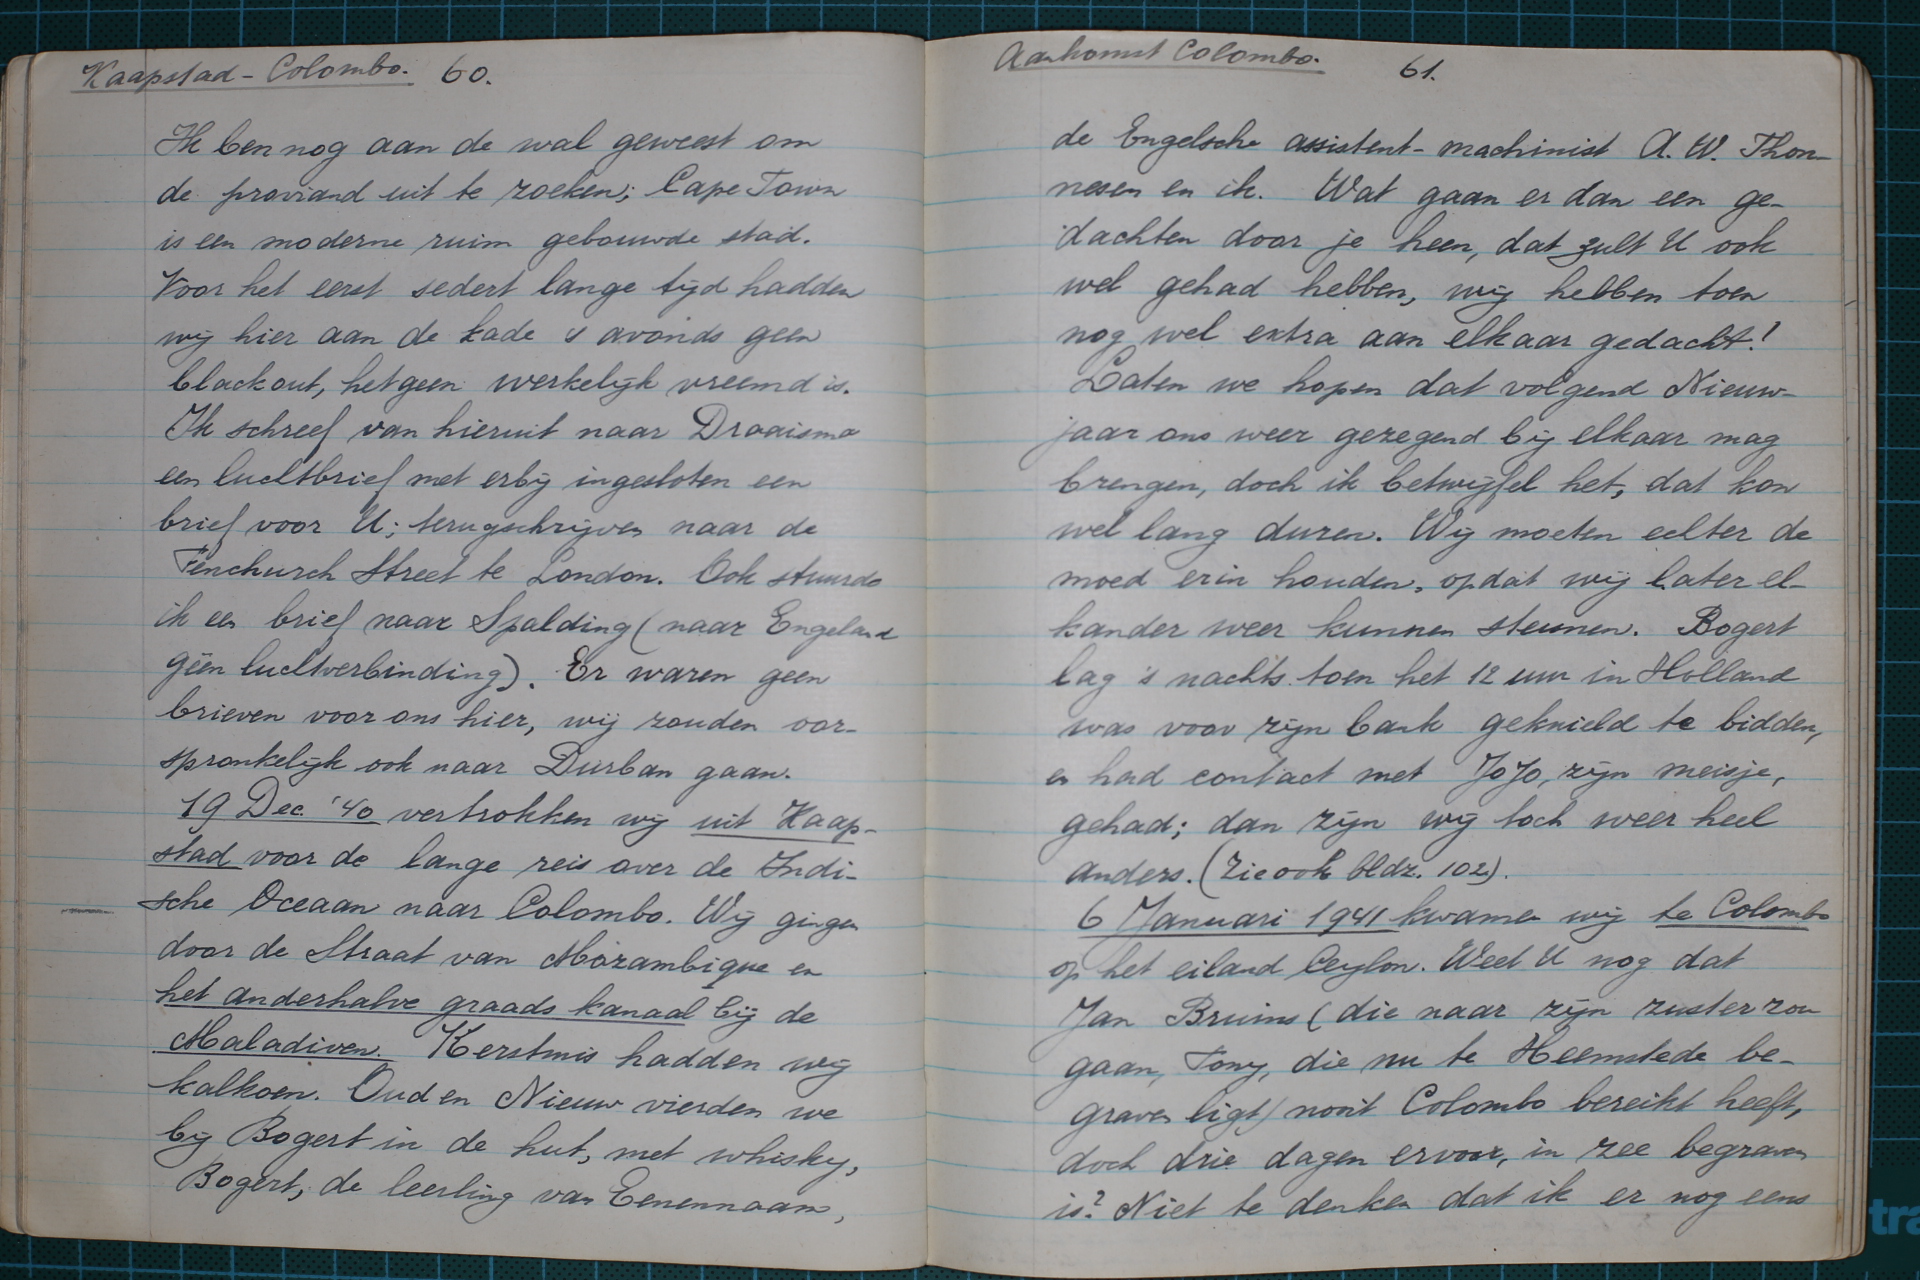 Kaapstad - Colombo. 60.
Ik ben nog aan de wal geweest om
de proviand uit te zoeken; Cape Town
is een moderne ruim gebouwde stad.
Voor het eerst sedert lange tijd hadden
wij hier aan de kade 's avonds geen
blackout, hetgeen werkelijk vreemd is.
Ik schreef van hieruit naar Draaisma
een luchtbrief met erbij ingesloten een
brief voor U; terugschrijven naar de
Fenchurch Street te London. Ook stuurde
ik een brief naar Spalding (naar Engeland
géén luchtverbinding). Er waren geen
brieven voor ons hier, wij zouden oor-
spronkelijk ook naar Durban gaan.
19 Dec. '40 vertrokken wij uit Kaap-
stad voor de lange reis over de Indi-
sche Oceaan naar Colombo. Wij gingen
door de Straat van Mozambique en
het anderhalve graads kanaal bij de
Maladiven. Kerstmis hadden wij
kalkoen. Oud en Nieuw vierden we
bij Bogert in de hut, met whisky,
Bogert, de leerling van Eenennaam,
Aankomst Colombo. 61.
de Engelsche assistent-machinist A. W. Thon-
nesen en ik. Wat gaan er dan een ge-
dachten door je heen, dat zult U ook
wel gehad hebben, wij hebben toen
nog wel extra aan elkaar gedacht!
Laten we hopen dat volgend Nieuw-
jaar ons weer gezegend bij elkaar mag
brengen, doch ik betwijfel het, dat kon
wel lang duren. Wij moeten echter de
moed erin houden, opdat wij later el-
kander weer kunnen steunen. Bogert
lag 's nachts toen het 12 uur in Holland
was voor zijn bank geknield te bidden,
en had contact met JoJo, zijn meisje,
gehad; dan zijn wij toch weer heel
anders. (Zie ook bldz. 102).
6 Januari 1941 kwamen wij te Colombo
op het eiland Ceylon. Weet U nog dat
Jan Bruins (die naar zijn zuster zou
gaan, Tony, die nu te Heemstede be-
graven ligt) nooit Colombo bereikt heeft,
doch drie dagen ervoor, in zee begraven
is? Niet te denken dat ik er nog eens
tra